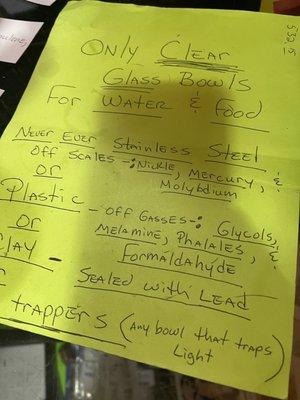 ONLY CLEAR
GLASS BOWLS
FOR WATER & FOOD
NEVER EVER STAINLESS STEEL
OFF SCALES -: NICKLE, MERCURY, &
MOLYBDIUM
OR
PLASTIC - OFF GASSES -: GLYCOLS,
MELAMINE, PHALALES, &
FORMALDAHYDE
OR
CLAY - SEALED WITH LEAD
TRAPPERS (ANY BOWL THAT TRAPS
LIGHT)